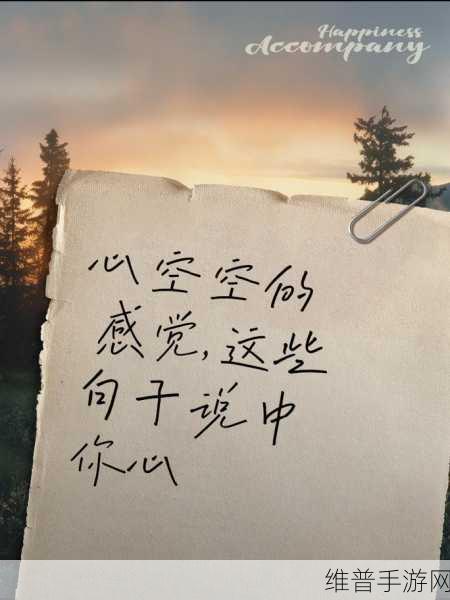 Happiness
Accompany
心空空的
感觉,这些
句子说中
你心
维普手游网